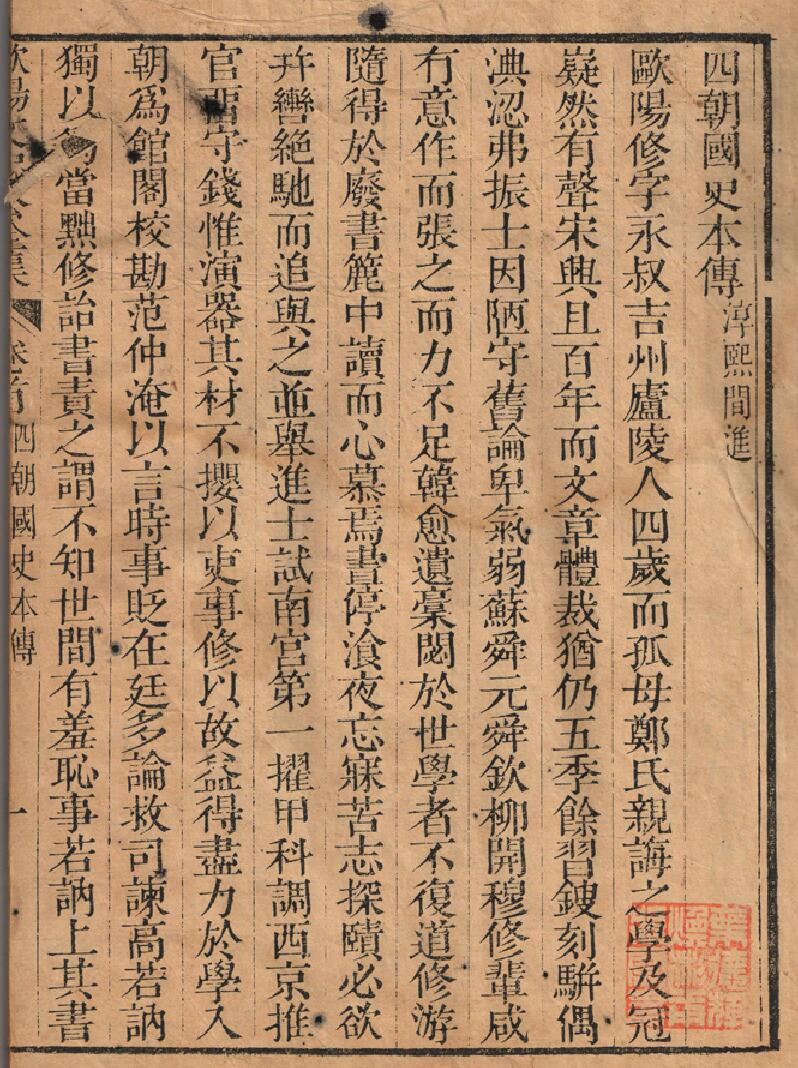 四朝國史本傳淳熙間進
歐陽修字永叔吉州廬陵人四歲而孤母鄭氏親誨之學及冠
嶷然有聲宋興且百年而文章體裁猶仍五季餘習鎪刻駢偶
淟涊弗振士因陋守舊論卑氣弱蘇舜元舜欽柳開穆修輩咸
有意作而張之而力不足韓愈遺稾閟於世學者不復道修游
隨得於廢書簏中讀而心慕焉晝停飡夜忘寐苦志探賾必欲
幷轡絶馳而追與之並舉進士試南宮第一擢甲科調西京推
官畱守錢惟演器其材不攖以吏事修以故益得盡力於學入
朝爲館閣校勘范仲淹以言時事貶在廷多論救司諫高若訥
獨以爲當黜修詒書責之謂不知世間有羞恥事若訥上其書
卷首
四朝國史本傳
一